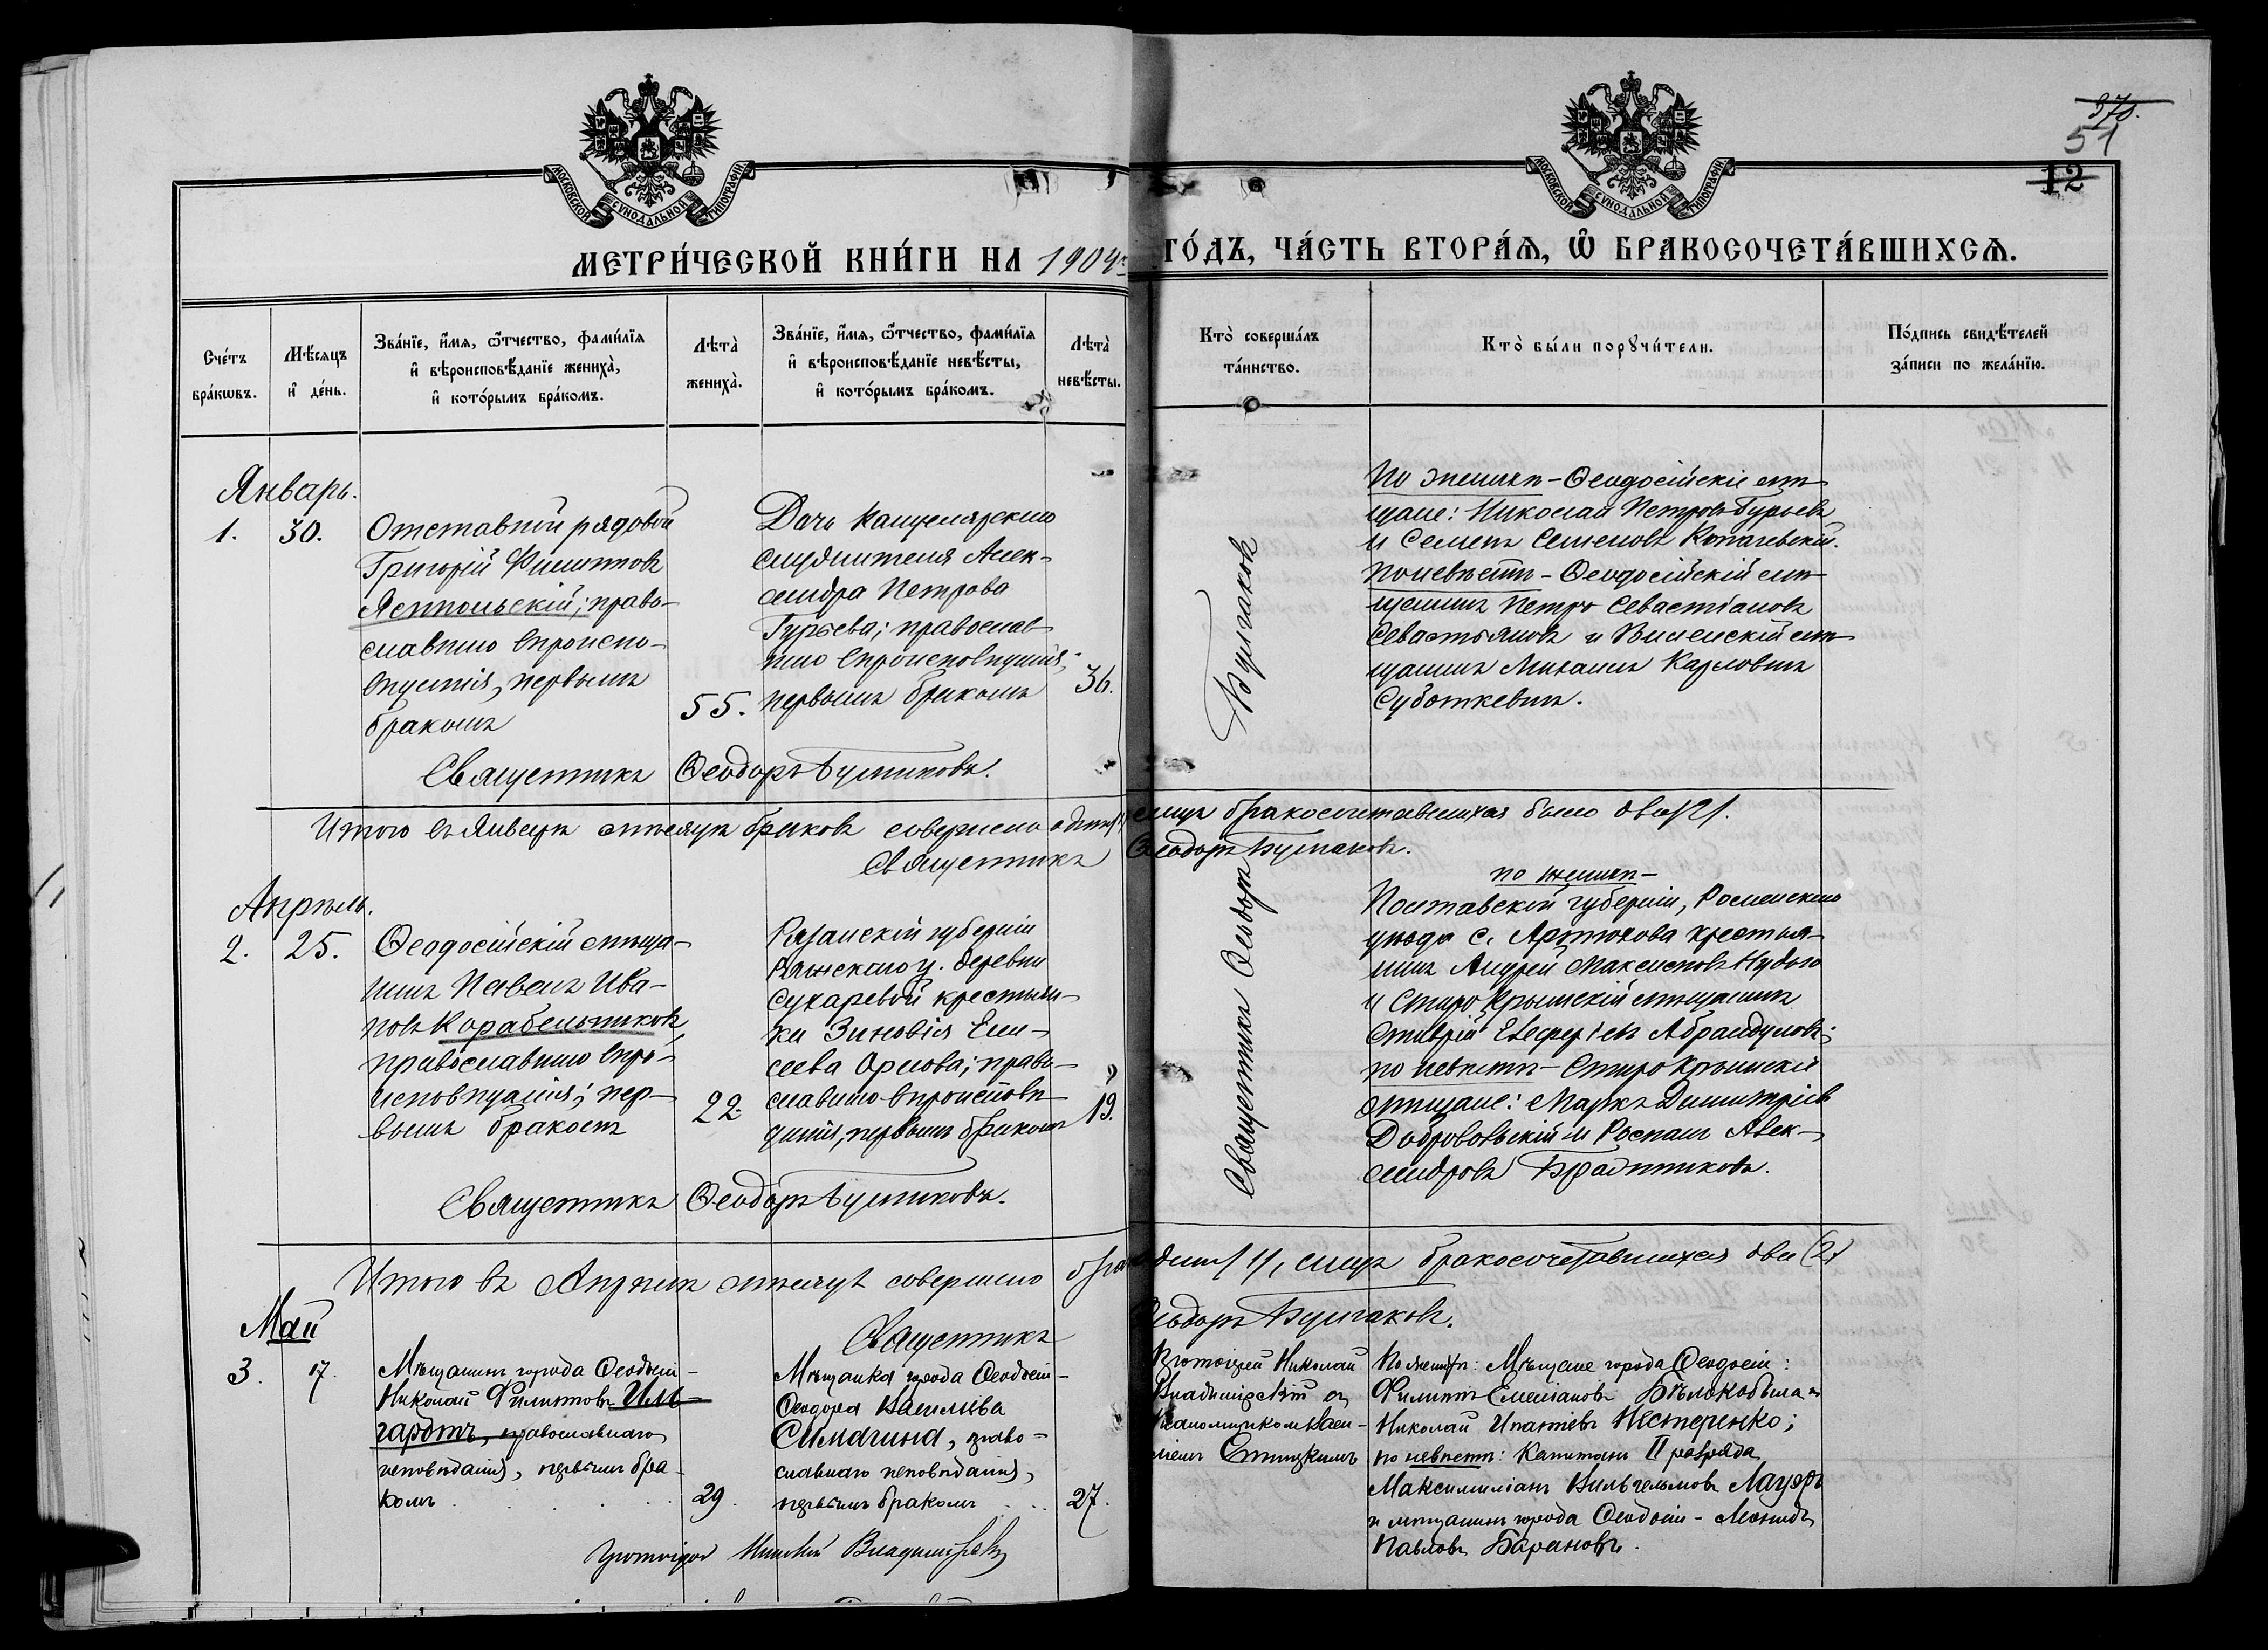 378.
51
12
МОСКОВСКОЙ СѴНОДАЛЬНОЙ ТИПОГРАФІИ
МОСКОВСКОЙ СѴНОДАЛЬНОЙ ТИПОГРАФІИ
МЕТРИ́ЧЕСКОЙ КНИ́ГИ НА 1904й ГО́ДЪ, ЧА́СТЬ ВТОРА́Я, Ѡ҆ БРАКОСОЧЕТА́ВШИХСЯ.
Сче́тъ
бра́кѡвъ.
Мѣ́сяцъ
и҆ де́нь.
Зва́нїе, и҆́мя, ѻ҆́тчество, фами́лїя
и҆ вѣроисповѣ́данїе жениха̀,
и҆ кото́рымъ бра́комъ.
Лѣта̀
жениха̀.
Зва́нїе, и҆́мя, ѻ҆́тчество, фами́лїя
и҆ вѣроисповѣ́данїе невѣ́сты,
и҆ кото́рымъ бра́комъ.
Лѣта̀
невѣ́сты.
Кто̀ соверша́лъ
та́инство.
Кто̀ бы́ли порꙋчи́тели.
По́дпись свидѣ́телей
за́писи по жела́нїю.
Январь.
1. 30.
Отставной рядовой
Григорій Филиповъ
Яспольскій; право-
славнаго вѣроиспо-
вѣданія, первымъ
бракомъ
55.
Дочь канцелярскаго
служителя Алек-
сандра Петрова
Гурьева; православ-
наго вѣроисповѣданія;
первымъ бракомъ
36.
Булгаковъ
По женихѣ - Ѳеодосійскіе мѣ-
щане: Николай Петровъ Гурьевъ
и Семенъ Семеновъ Копачевскій.
По невѣстѣ - Ѳеодосійскій мѣ-
щанинъ Петръ Севастіановъ
Севастьяновъ и Виленскій мѣ-
щанинъ Михаилъ Карловичъ
Суботкевичъ.
Священникъ Ѳеодоръ Булгаковъ.
Итого въ Январѣ мѣсяцѣ браковъ совершено одинъ /1/, лицъ бракосочетавшихся было два /2/.
Священникъ Ѳеодоръ Булгаковъ.
Апрѣль.
2. 25.
Ѳеодосійскій мѣща-
нинъ Павелъ Ива-
новъ Корабельниковъ,
православнаго вѣро-
исповѣданія; пер-
вымъ бракомъ
22.
Рязанскій губерніи
Ряжскаго у. деревни
Сухаревой крестьян-
ка Зиновія Ели-
сеева Орлова; право-
славнаго вѣроисповѣ-
данія, первымъ бракомъ
19.
Священникъ Ѳеодоръ
по женихѣ -
Полтавской губерніи, Роменскаго
уѣзда с. Артюхова крестья-
нинъ Андрей Максимовъ Нудьго
и Старо-Крымскій мѣщанинъ
по невѣстѣ - Старо Крымскіе
мѣщане: Маркъ Димитріевъ
Добровольскій и Романъ Алек-
сандровъ Братниковъ.
Священникъ Ѳеодоръ Булгаковъ.
Итого въ Апрѣлѣ мѣсяцѣ совершено бракъ одинъ /1/, лицъ бракосочетавшихся два (2)
Священникъ Ѳеодоръ Булгаковъ.
Май
3. 17.
Мѣщанинъ города Ѳеодосіи -
Николай Филиповъ Иль-
гардтъ, православнаго
исповѣданія, первымъ бра-
комъ
29.
Мѣщанка города Ѳеодосіи -
Ѳеодора Васильева
Симагина, право-
славнаго исповѣданія,
первымъ бракомъ
27.
Протоіерей Николай
Владимірскій съ
псаломщикомъ Васи-
ліемъ
По женихѣ: Мѣщане города Ѳеодосіи:
Филиппъ Емеліановъ Бѣлокобыла и
Николай Ипатіевъ Нестеренко;
по невѣстѣ: Капитанъ II разряда
Максимиліанъ Вильгельмовъ Лауэръ
и мѣщанинъ города Ѳеодосіи - Леонидъ
Павловъ Барановъ.
Протоіерей Николай Владимірскій